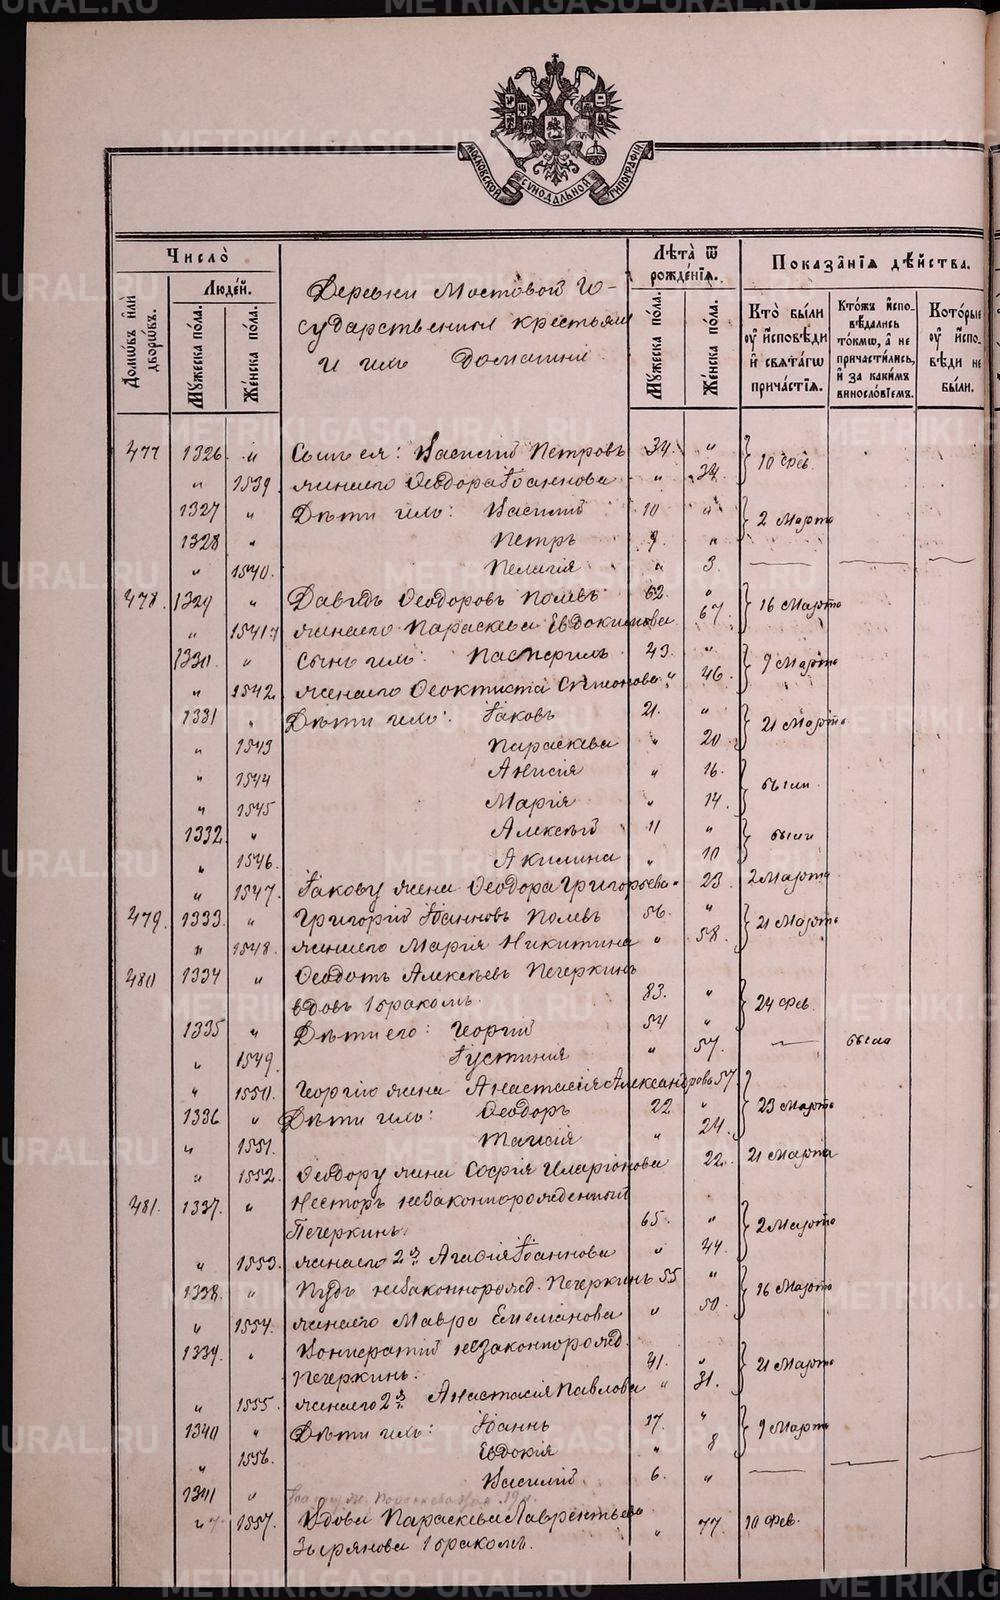 МОСКОВСКОЙ СѴНОДАЛЬНОЙ ТИПОГРАФІИ
Число̀
Домѡвъ и҆лѝ дворѡвъ.
Люде́й.
Мꙋжеска по́ла.
Же́нска по́ла.
Деревни Мостовой Го-
сударственные крестьяне
и ихъ домашніе
Лѣта̀ ѿ рожде́нїѧ.
Мꙋжеска по́ла.
Же́нска по́ла.
Показа̑нїѧ дѣ́йства.
Кто̀ бы́ли оу҆ и҆сповѣди и҆ свѧта́гѡ причастїѧ.
Кто́жъ и҆спо-вѣдались то́кмѡ, а҆ не причасти́лись, и҆ за каки́мъ винослѡвїемъ.
Кото́рые оу҆ и҆спо-вѣди не бы́ли.
477 1326. " Сынъ ея: Василій Петровъ 34. " 10 Фев.
" 1539. жена его Ѳеодора Іоаннова " 34.
1327 " Дѣти ихъ: Василій 10 " 2 Марта
1328 " Петръ 7 "
" 1540. Пелагія " 3.
478. 1329 " Давидъ Ѳеодоровъ Полевъ 62. " 16 Марта
" 1541. жена его Параскева Евдокимова 67.
1330. " Сынъ ихъ: 43. " 9 Марта
" 1542. жена его Ѳеоктиста Симеонова " 46.
1331 " Дѣти ихъ: Іаковъ 21. " 21 Марта
" 1543 Параскева " 20
" 1544 Анисія " 16. были
" 1545 Марія " 14.
1332. " Алексѣй 11 " были
" 1546. Акилина " 10
" 1547. Іакову жена Ѳеодора Григорьева " 23. 2 Марта
479. 1333. " Григорій Іоанновъ Полевъ 56. " 21 Марта
" 1548. жена его Марія Никитина " 58.
480 1334 " Ѳеодотъ Алексѣевъ Печеркинъ
вдовъ 1 бракомъ. 83. " 24 Фев.
1335 " Дѣти его: Георгій 54 "
" 1549. Іустинія " 57. была
" 1550. Георгію жена Анастасія Александрова 57.
1336 " Дѣти ихъ: Ѳеодоръ 22 " 23 Марта
" 1551. Таисія " 24.
" 1552. Ѳеодору жена Софія Иларіонова 22. 21 Марта
481. 1337. " Несторъ незаконнорожденный
Печеркинъ. 65. " 2 Марта
" 1553. жена его 2я Агафія Іоаннова " 44.
1338. " Пудъ незаконнорожд. Печеркинъ 55 " 16 Марта
" 1554. жена его Мавра Емеліанова " 50.
1339. " незаконнорожд.
Печеркинъ. 41. " 21 Марта
" 1555. жена его 2я Анастасія Павлова " 31.
1340 " Дѣти ихъ: Іоаннъ 17. " 9 Марта
" 1556. Евдокія " 8
1341 " Василій 6. "
" 1557. Вдова Параскева Лаврентьева
Зырянова 1 бракомъ. " 77. 10 Фев.
METRIKI.GASO-URAL.RU